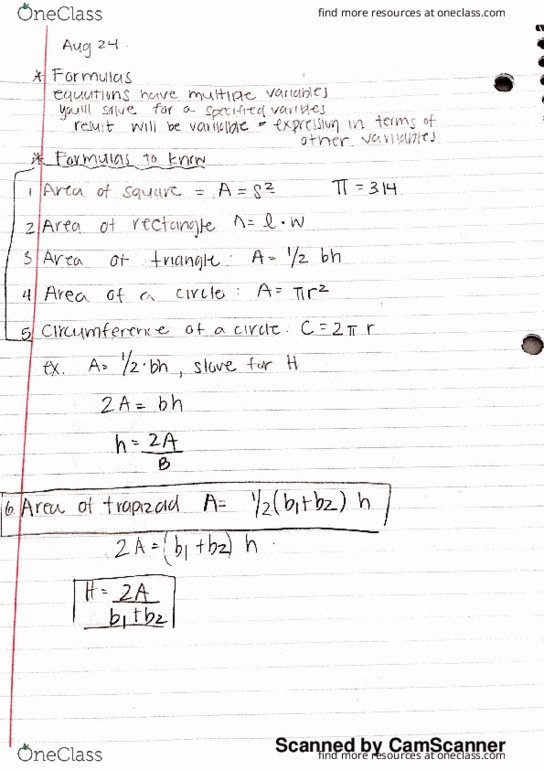 OneClass
find more resources at oneclass.com
Aug 24.
* Formulas
equations have multiple variables
you'll solve for a specified varibles
result will be variable = expression in terms of
other variables
* Formulas to know
1 Area of square = A = s² π = 3.14
2 Area of rectangle A = l · w
3 Area of triangle : A = 1/2 bh
4 Area of a circle : A = πr²
5 Circumference of a circle : C = 2πr
ex. A = 1/2 · bh , slove for H
2A = bh
h = 2A
B
6 Area of trapizoid A = 1/2 (b1+b2) h
2A = (b1+b2) h
H = 2A
b1+b2
Scanned by CamScanner
OneClass
find more resources at oneclass.com